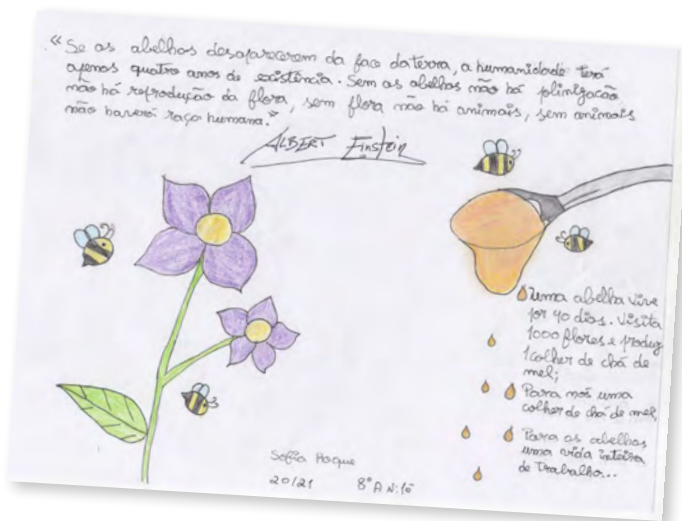 “Se as abelhas desaparecerem da face da terra, a humanidade terá
apenas quatro anos de existência. Sem as abelhas não há plinização
não há reprodução da flora, sem flora não há animais, sem animais
não haverá raça humana.”
ALBERT Einstein
Uma abelha vive
por 40 dias. Visita
1000 flores e produz
1 colher de chá de
mel;
Para nós uma
colher de chá de mel
Para as abelhas
uma vida inteira
de Trabalho...
Sofia
20/21 8º A N:16